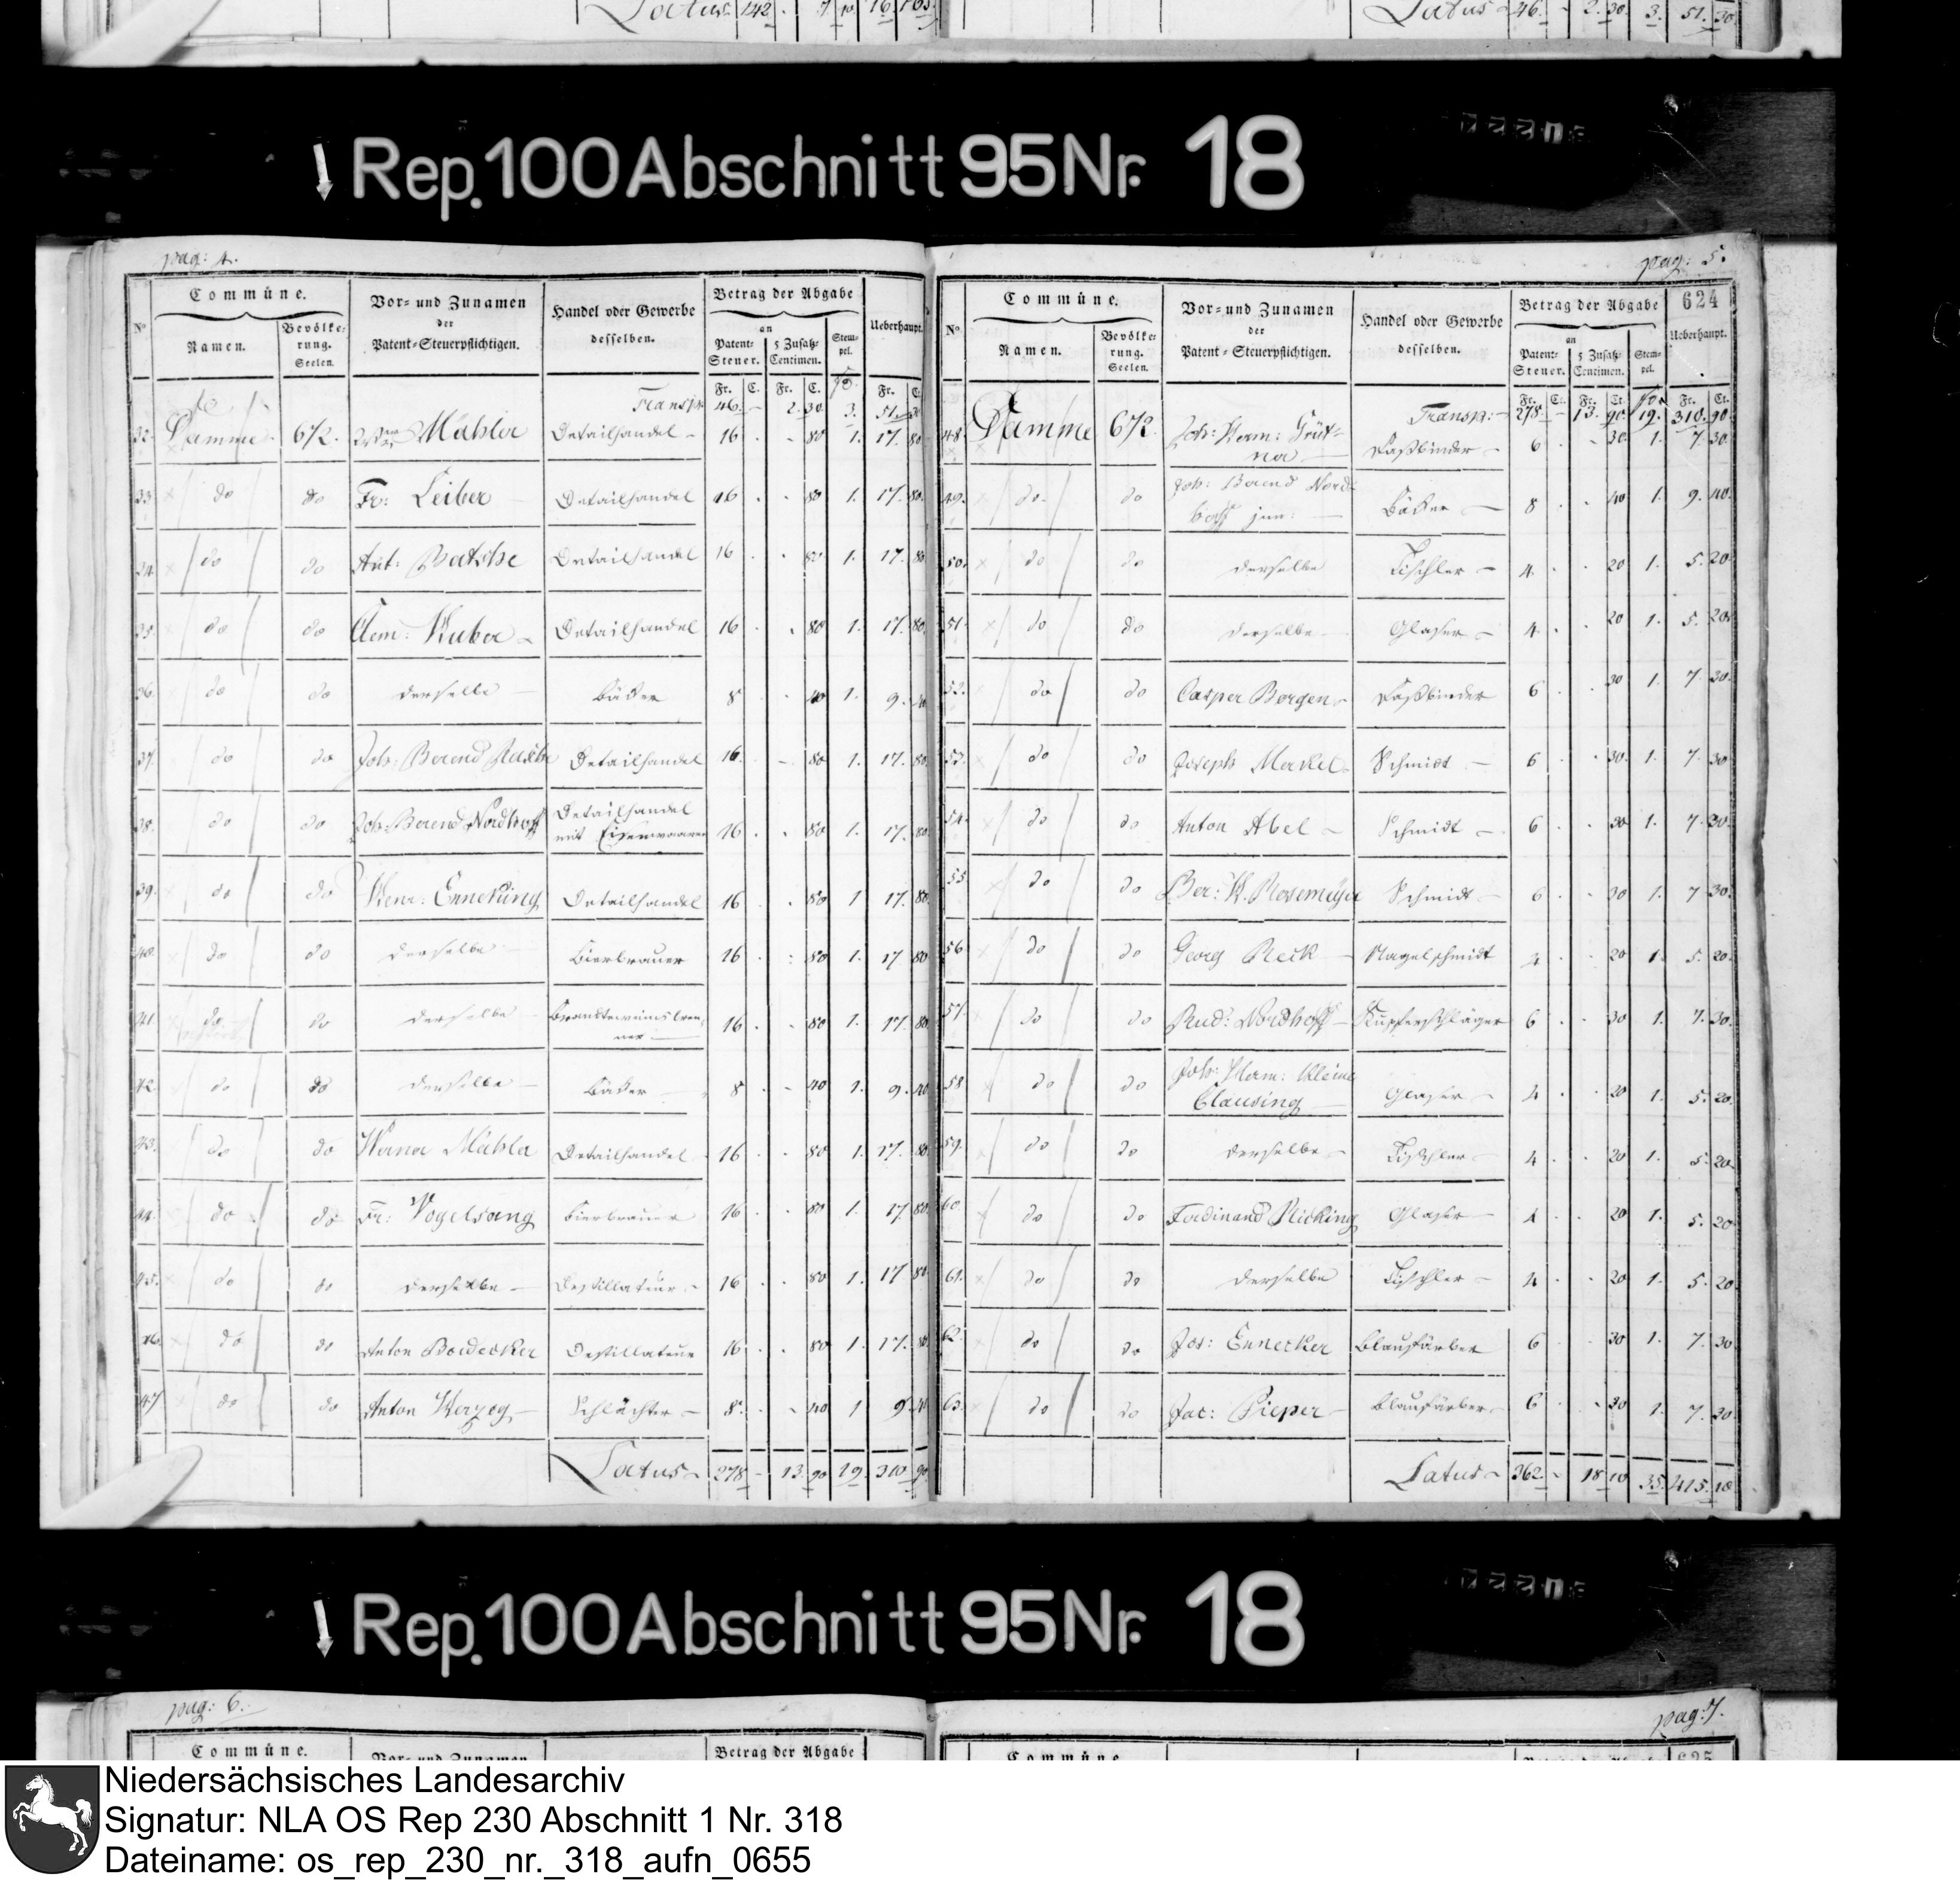 Latus 142. 7 10 16 165.
Latus 46. - 2. 30. 3. 51. 30
Rep. 100 Abschnitt 95 Nr. 18
pag: 4.
Commüne.
Vor- und Zunamen
der
Patent-Steuerpflichtigen.
Handel oder Gewerbe
desselben.
Betrag der Abgabe
Ueberhaupt.
No
Namen.
Bevölke-
rung.
Seelen.
an
Patent-
Steuer.
5 Zusatz-
Centimen.
Stem-
pel.
Fr. C. Fr. C. Fr. C.
Transp: 46. - 2. 30. 3. 51. 30
32. Damme. 672. Mähler Detailhandel - 16 - 80 1. 17. 80
33 do do Fr: Leiber Detailhandel 16 . - 80 1. 17. 80.
34 do do Ant: Detailhandel 16 . . 80 1. 17. 80
35. do do Clem: Huber - Detailhandel 16 . . 80 1. 17. 80.
36. do do derselbe Bäcker 8 . - 40 1. 9. 40
37. do do Joh: Berend Detailhandel 16. - 80 1. 17. 80
38. do do Joh: Berend Nordhoff Detailhandel
mit Eisenwaaren 16 . . 80 1. 17. 80
39. do do Henr: Enneking Detailhandel 16 . . 80 1 17. 80
40. do do derselbe Bierbrauer 16 . : 80 1. 17 80
41 do do derselbe Brandteweinsbren-
ner 16 . . 80 1. 17. 80
42. do do derselbe - Bäcker 8 . - 40 1. 9. 40
43. do do Werner Mähler Detailhandel 16 . . 80 1. 17. 80
44. do do Fr: Vogelsang Bierbrauer 16 . . 80 1. 17 80
45. do do derselbe - Destillateur - 16 . . 80 1. 17 80
46. do do Anton Boedecker Destillateur 16 . . 80 1. 17. 80
47 do do Anton Herzog - Schlächter - 8. . - 40 1 9 40
Latus - 278 - 13. 90 19. 310 90
pag: 5.
624
Commüne.
Vor- und Zunamen
der
Patent-Steuerpflichtigen.
Handel oder Gewerbe
desselben.
Betrag der Abgabe
Ueberhaupt.
No.
Namen.
Bevölke-
rung.
Seelen.
an
Patent-
Steuer.
5 Zusatz-
Centimen.
Stem-
pel.
Fr. Ct. Fr. Ct. Fr. Ct.
Transp: - 278. - 13. 90. 19. 310. 90
48 Damme 672. Joh: Herm: Grüt-
ner Faßbinder - 6 - 30. 1. 7. 30.
49. do. do Joh: Berend Nord-
hoff jun: Bäcker - 8 . . 40 1. 9. 40.
50. do do derselbe Tischler - 4. . . 20 1. 5. 20
51. do do derselbe Glaser - 4. . . 20 1. 5. 20
52. do do Casper Borgen - Faßbinder 6 . . 30 1. 7. 30.
53. do do Joseph Merkel Schmidt - 6 . . 30. 1. 7. 30
54. do do Anton Abel - Schmidt - 6 . . 30 1. 7. 30
55 do do Ber: H. Rosemeyer Schmidt - 6 . - 30 1. 7 30.
56 do do Georg Reck - Nagelschmidt 4 . . 20 1. 5. 20.
57. do do Rud: Nordhoff - Kupferschläger 6 . . 30 1. 7. 30.
58. do do Joh: Herm: Kleine
Clausing Glaser - 4 . . 20 1. 5. 20.
59. do do derselbe - Tischler - 4 . . 20 1. 5. 20.
60 do do Ferdinand Nicking Glaser - 4 . . 20 1. 5. 20
61. do do derselbe Tischler - 4 . . 20 1. 5. 20
62. do do Jos: Ennecker Blaufärber 6 . . 30 1. 7. 30
63. do do Jac: Pieper - Blaufärber 6 . - 30 1. 7. 30.
Latus - 362. - 18 10 35. 415. 10
Rep. 100 Abschnitt 95 Nr. 18
pag: 6.
pag: 7.
Commüne.
Betrag der Abgabe
Niedersächsisches Landesarchiv
Signatur: NLA OS Rep 230 Abschnitt 1 Nr. 318
Dateiname: os_rep_230_nr._318_aufn_0655